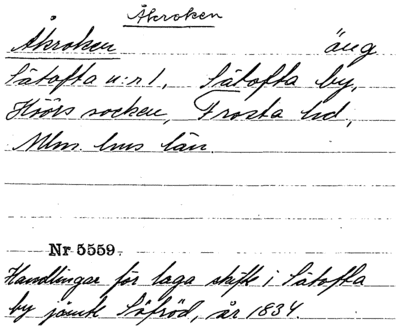 Åkroken
Åkroken äng
Sätofta n:r 1, Sätofta by,
Höörs socken, Frosta hd,
Mlm. hus län.
Nr 5559.
Handlingar för laga skifte i Sätofta
by jämte Såfröd, år 1834.